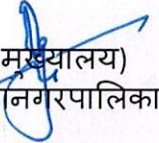 मुख्यालय)
नगरपालिका